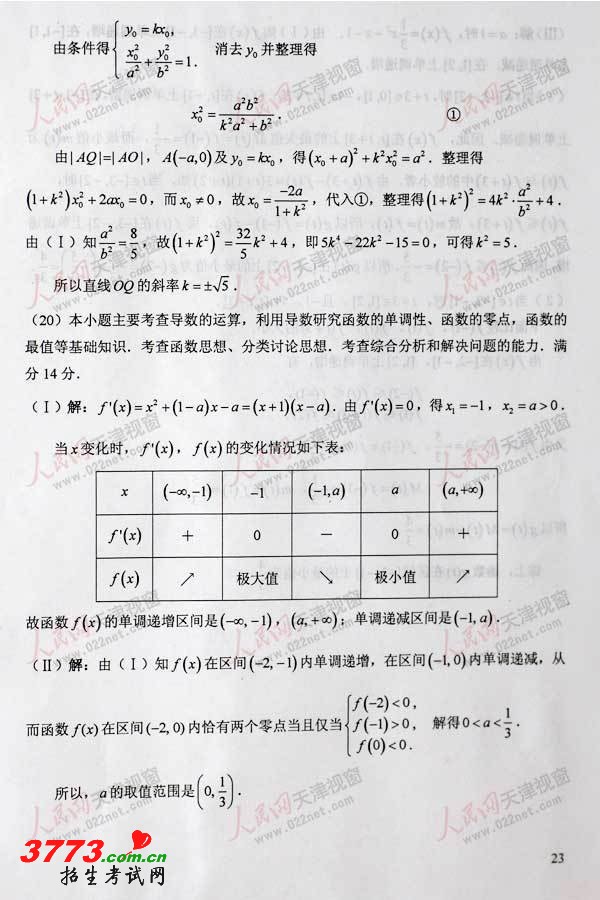 由条件得{y₀=kx₀, x₀²/a²+y₀²/b²=1. 消去y₀并整理得
x₀²=a²b²/(k²a²+b²). ①
由|AQ|=|AO|，A(−a,0)及y₀=kx₀，得(x₀+a)²+k²x₀²=a²．整理得
(1+k²)x₀²+2ax₀=0，而x₀≠0，故x₀=−2a/(1+k²)，代入①，整理得(1+k²)²=4k²·a²/b²+4．
由（Ⅰ）知a²/b²=8/5，故(1+k²)²=32/5k²+4，即5k⁴−22k²−15=0，可得k²=5．
所以直线OQ的斜率k=±√5．
（20）本小题主要考查导数的运算，利用导数研究函数的单调性、函数的零点，函数的
最值等基础知识．考查函数思想、分类讨论思想．考查综合分析和解决问题的能力．满
分14分．
（Ⅰ）解：f'(x)=x²+(1−a)x−a=(x+1)(x−a)．由f'(x)=0，得x₁=−1，x₂=a>0．
当x变化时，f'(x)，f(x)的变化情况如下表：
x (−∞,−1) −1 (−1,a) a (a,+∞)
f'(x) + 0 − 0 +
f(x) ↗ 极大值 ↘ 极小值 ↗
故函数f(x)的单调递增区间是(−∞,−1)，(a,+∞)；单调递减区间是(−1,a)．
（Ⅱ）解：由（Ⅰ）知f(x)在区间(−2,−1)内单调递增，在区间(−1,0)内单调递减，从
而函数f(x)在区间(−2,0)内恰有两个零点当且仅当{f(−2)<0, f(−1)>0, f(0)<0. 解得0<a<1/3．
所以，a的取值范围是(0,1/3)．
23
3773.com.cn
招生考试网
人民网天津视窗
www.022net.com